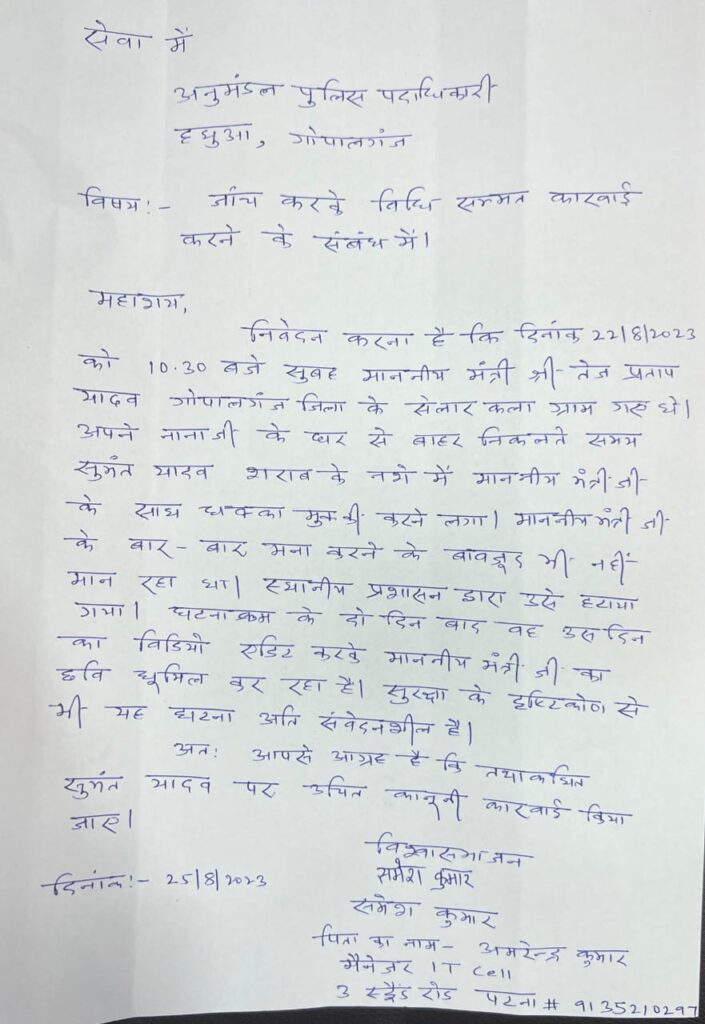 सेवा में
अनुमंडल पुलिस पदाधिकारी
हथुआ, गोपालगंज
विषय:- जांच करके विधि सम्मत कारवाई
करने के संबंध में।
महाशय,
निवेदन करना है कि दिनांक 22/8/2023
को 10.30 बजे सुबह माननीय मंत्री श्री तेज प्रताप
यादव गोपालगंज जिला के सेलार कला ग्राम गए थे।
अपने नानाजी के घर से बाहर निकलते समय
सुमंत यादव शराब के नशे में माननीय मंत्री जी
के साथ धक्का मुक्की करने लगा। माननीय मंत्री जी
के बार-बार मना करने के बावजूद भी नहीं
मान रहा था। स्थानीय प्रशासन द्वारा उसे हटाया
गया। घटनाक्रम के दो दिन बाद वह उस दिन
का विडियो एडिट करके माननीय मंत्री जी का
छवि धूमिल कर रहा है। सुरक्षा के दृष्टिकोण से
भी यह घटना अति संवेदनशील है।
अत: आपसे आग्रह है कि तथाकथित
सुमंत यादव पर उचित कानूनी कारवाई किया
जाए।
विश्वासभाजन
दिनांक:- 25/8/2023
समेश कुमार
समेश कुमार
पिता का नाम- अमरेन्द्र कुमार
मैनेजर IT Cell
3 स्ट्रैंड रोड पटना # 9135210297